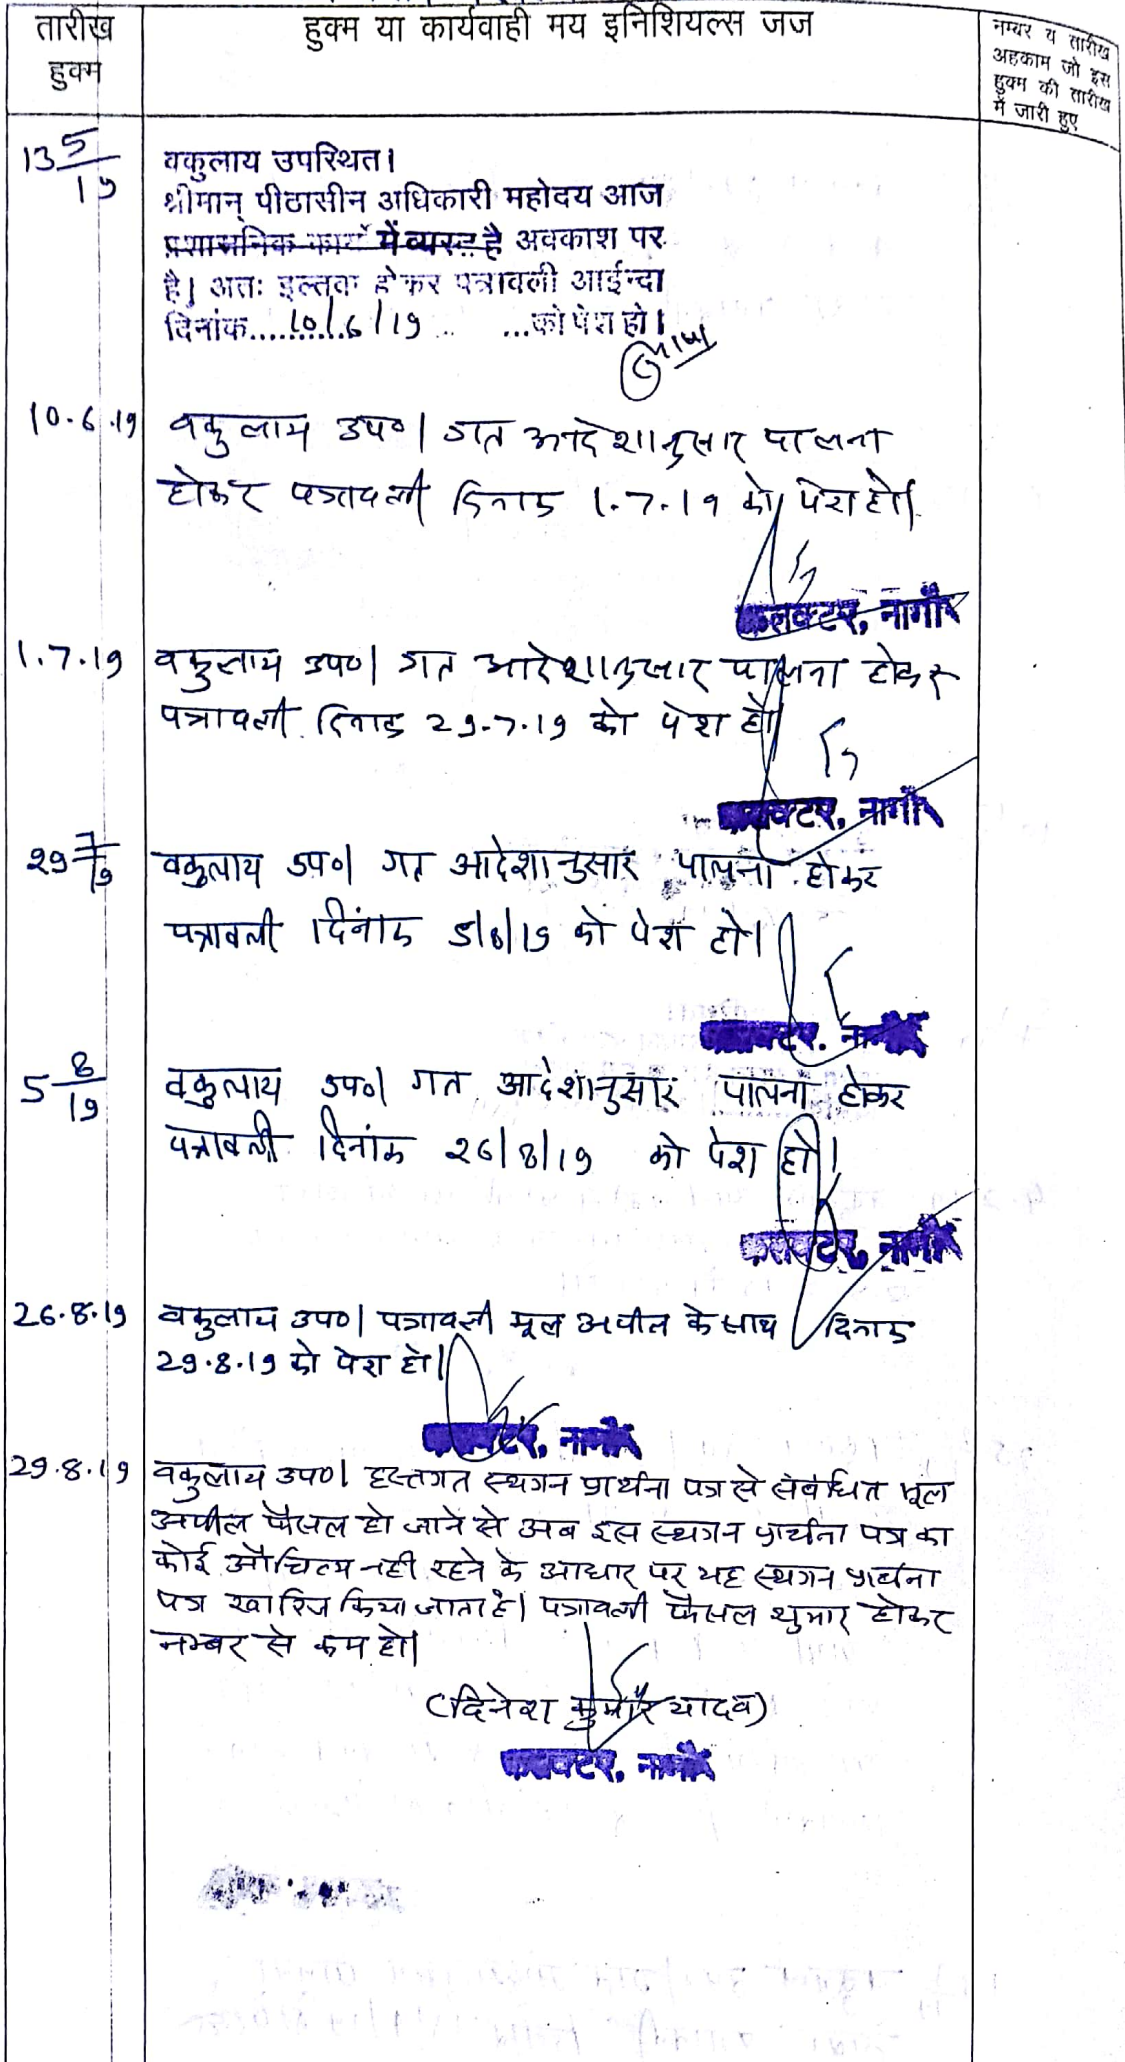 तारीख
हुक्म
हुक्म या कार्यवाही मय इनिशियल्स जज
नम्बर य तारीख
अहकाम जो इस
हुक्म की तारीख
में जारी हुए
13 5/19
वकुलाय उपस्थित।
श्रीमान् पीठासीन अधिकारी महोदय आज
प्रशासनिक कार्य में व्यस्त है अवकाश पर
है। अतः इल्तवा होकर पत्रावली आईन्दा
दिनांक....10/6/19.....को पेश हो।
10.6.19
वकुलाय उप०। गत आदेशानुसार पालना
होकर पत्रावली दिनांक 1.7.19 को पेश हो।
कलक्टर, नागौर
1.7.19
वकुलाय उप०। गत आदेशानुसार पालना होकर
पत्रावली दिनांक 29.7.19 को पेश हो।
कलक्टर, नागौर
29 7/19
वकुलाय उप०। गत आदेशानुसार पालना होकर
पत्रावली दिनांक 5/8/19 को पेश हो।
कलक्टर, नागौर
5 8/19
वकुलाय उप०। गत आदेशानुसार पालना होकर
पत्रावली दिनांक 26/8/19 को पेश हो।
कलक्टर, नागौर
26.8.19
वकुलाय उप०। पत्रावली मूल अपील के साथ दिनांक
29.8.19 को पेश हो।
कलक्टर, नागौर
29.8.19
वकुलाय उप०। हस्तगत स्थगन प्रार्थना पत्र से संबंधित मूल
अपील फैसल हो जाने से अब इस स्थगन प्रार्थना पत्र का
कोई औचित्य नही रहने के आधार पर यह स्थगन प्रार्थना
पत्र खारिज किया जाता है। पत्रावली फैसल शुमार होकर
नम्बर से कम हो।
(दिनेश कुमार यादव)
कलक्टर, नागौर